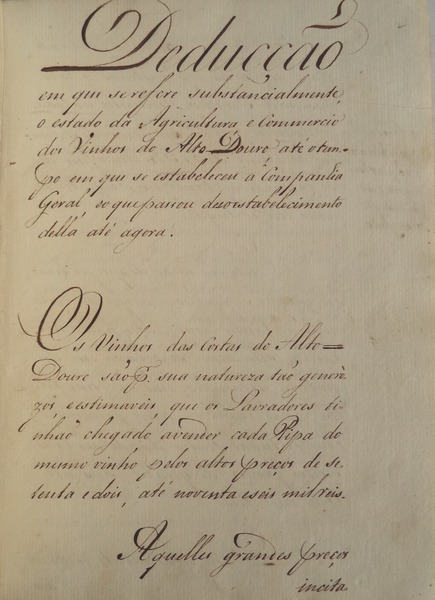 Deducção
em que se refere substancialmente,
o estado da Agricultura, e Commercio
dos Vinhos do Alto Douro até o tem-
po em que se estabeleceu a Companhia
Geral, e o que passou do seo estabelecimento
della até agora.
Os Vinhos das Costas do Alto=
Douro são p. sua natureza tão genero-
zos, e estimaveis, que os Lavradores ti-
nhaõ chegado a vender cada Pipa do
mesmo vinho pelos altos preços de se-
tenta e dois, até noventa e seis mil reis.
Aquelles grandes preços
incita